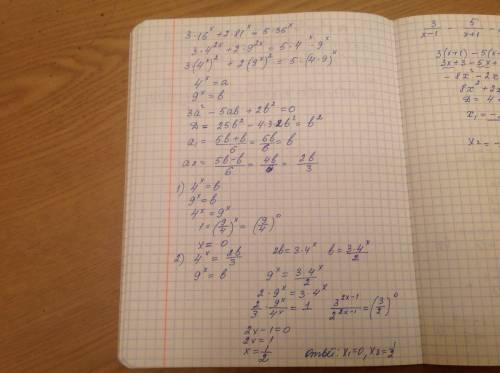 3·16^x + 2·81^x = 5·36^x
3·4^{2x} + 2·9^{2x} = 5·4^x·9^x
3(4^x)^2 + 2(9^x)^2 = 5·(4·9)^x
4^x = a
9^x = b
3a^2 - 5ab + 2b^2 = 0
D = 25b^2 - 4·3·2b^2 = b^2
a_1 = \frac{5b+b}{6} = \frac{6b}{6} = b
a_2 = \frac{5b-b}{6} = \frac{4b}{6} = \frac{2b}{3}
1) 4^x = b
9^x = b
4^x = 9^x
1 = (\frac{9}{4})^x = (\frac{9}{4})^0
x = 0
2) 4^x = \frac{2b}{3} 2b = 3·4^x b = \frac{3·4^x}{2}
9^x = b 9^x = \frac{3·4^x}{2}
2·9^x = 3·4^x
\frac{2}{3}·\frac{9^x}{4^x} = 1 \frac{3^{2x-1}}{2^{2x-1}} = (\frac{3}{2})^0
2x-1=0
2x=1
x=\frac{1}{2} Ответ: x_1=0, x_2=\frac{1}{2}
\frac{3}{x-1} - \frac{5}{x+1}
3(x+1) - 5(x-
3x+3 - 5x+
-8x^2 - 2x
8x^2 + 2x
D = 4+
x_1 = -
x_2 = -